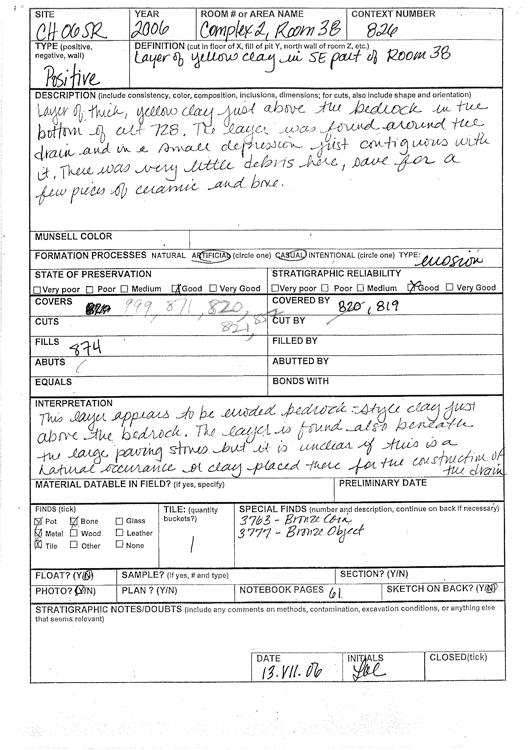 SITE YEAR ROOM # or AREA NAME CONTEXT NUMBER
CH06SR 2006 Complex 2, Room 3B 826
TYPE (positive, negative, wall) DEFINITION (cut in floor of X, fill of pit Y, north wall of room Z, etc.)
Positive Layer of yellow clay in SE part of Room 3B
DESCRIPTION (include consistency, color, composition, inclusions, dimensions; for cuts, also include shape and orientation)
Layer of thick, yellow clay just above the bedrock in the
bottom of cut 728. The layer was found around the
drain and in a small depression just contiguous with
it. There was very little debris here, save for a
few pieces of ceramic and bone.
MUNSELL COLOR
FORMATION PROCESSES NATURAL ARTIFICIAL (circle one) CASUAL INTENTIONAL (circle one) TYPE: erosion
STATE OF PRESERVATION STRATIGRAPHIC RELIABILITY
Very poor Poor Medium Good Very Good Very poor Poor Medium Good Very Good
COVERS 999, 871, 820, COVERED BY 820, 819
821,
CUTS CUT BY
FILLS 874 FILLED BY
ABUTS ABUTTED BY
EQUALS BONDS WITH
INTERPRETATION
This layer appears to be eroded bedrock-style clay just
above the bedrock. The layer is found also beneath
the large paving stones but it is unclear if this is a
natural occurance or clay placed there for the construction of
the drain
MATERIAL DATABLE IN FIELD? (if yes, specify) PRELIMINARY DATE
FINDS (tick) TILE: (quantity buckets?) SPECIAL FINDS (number and description, continue on back if necessary)
Pot Bone Glass 3763 - Bronze Coin
Metal Wood Leather 1 3777 - Bronze Object
Tile Other None
FLOAT? (Y/N) SAMPLE? (if yes, # and type) SECTION? (Y/N)
PHOTO? (Y/N) PLAN? (Y/N) NOTEBOOK PAGES 61 SKETCH ON BACK? (Y/N)
STRATIGRAPHIC NOTES/DOUBTS (include any comments on methods, contamination, excavation conditions, or anything else
that seems relevant)
DATE INITIALS CLOSED(tick)
13.VII.06